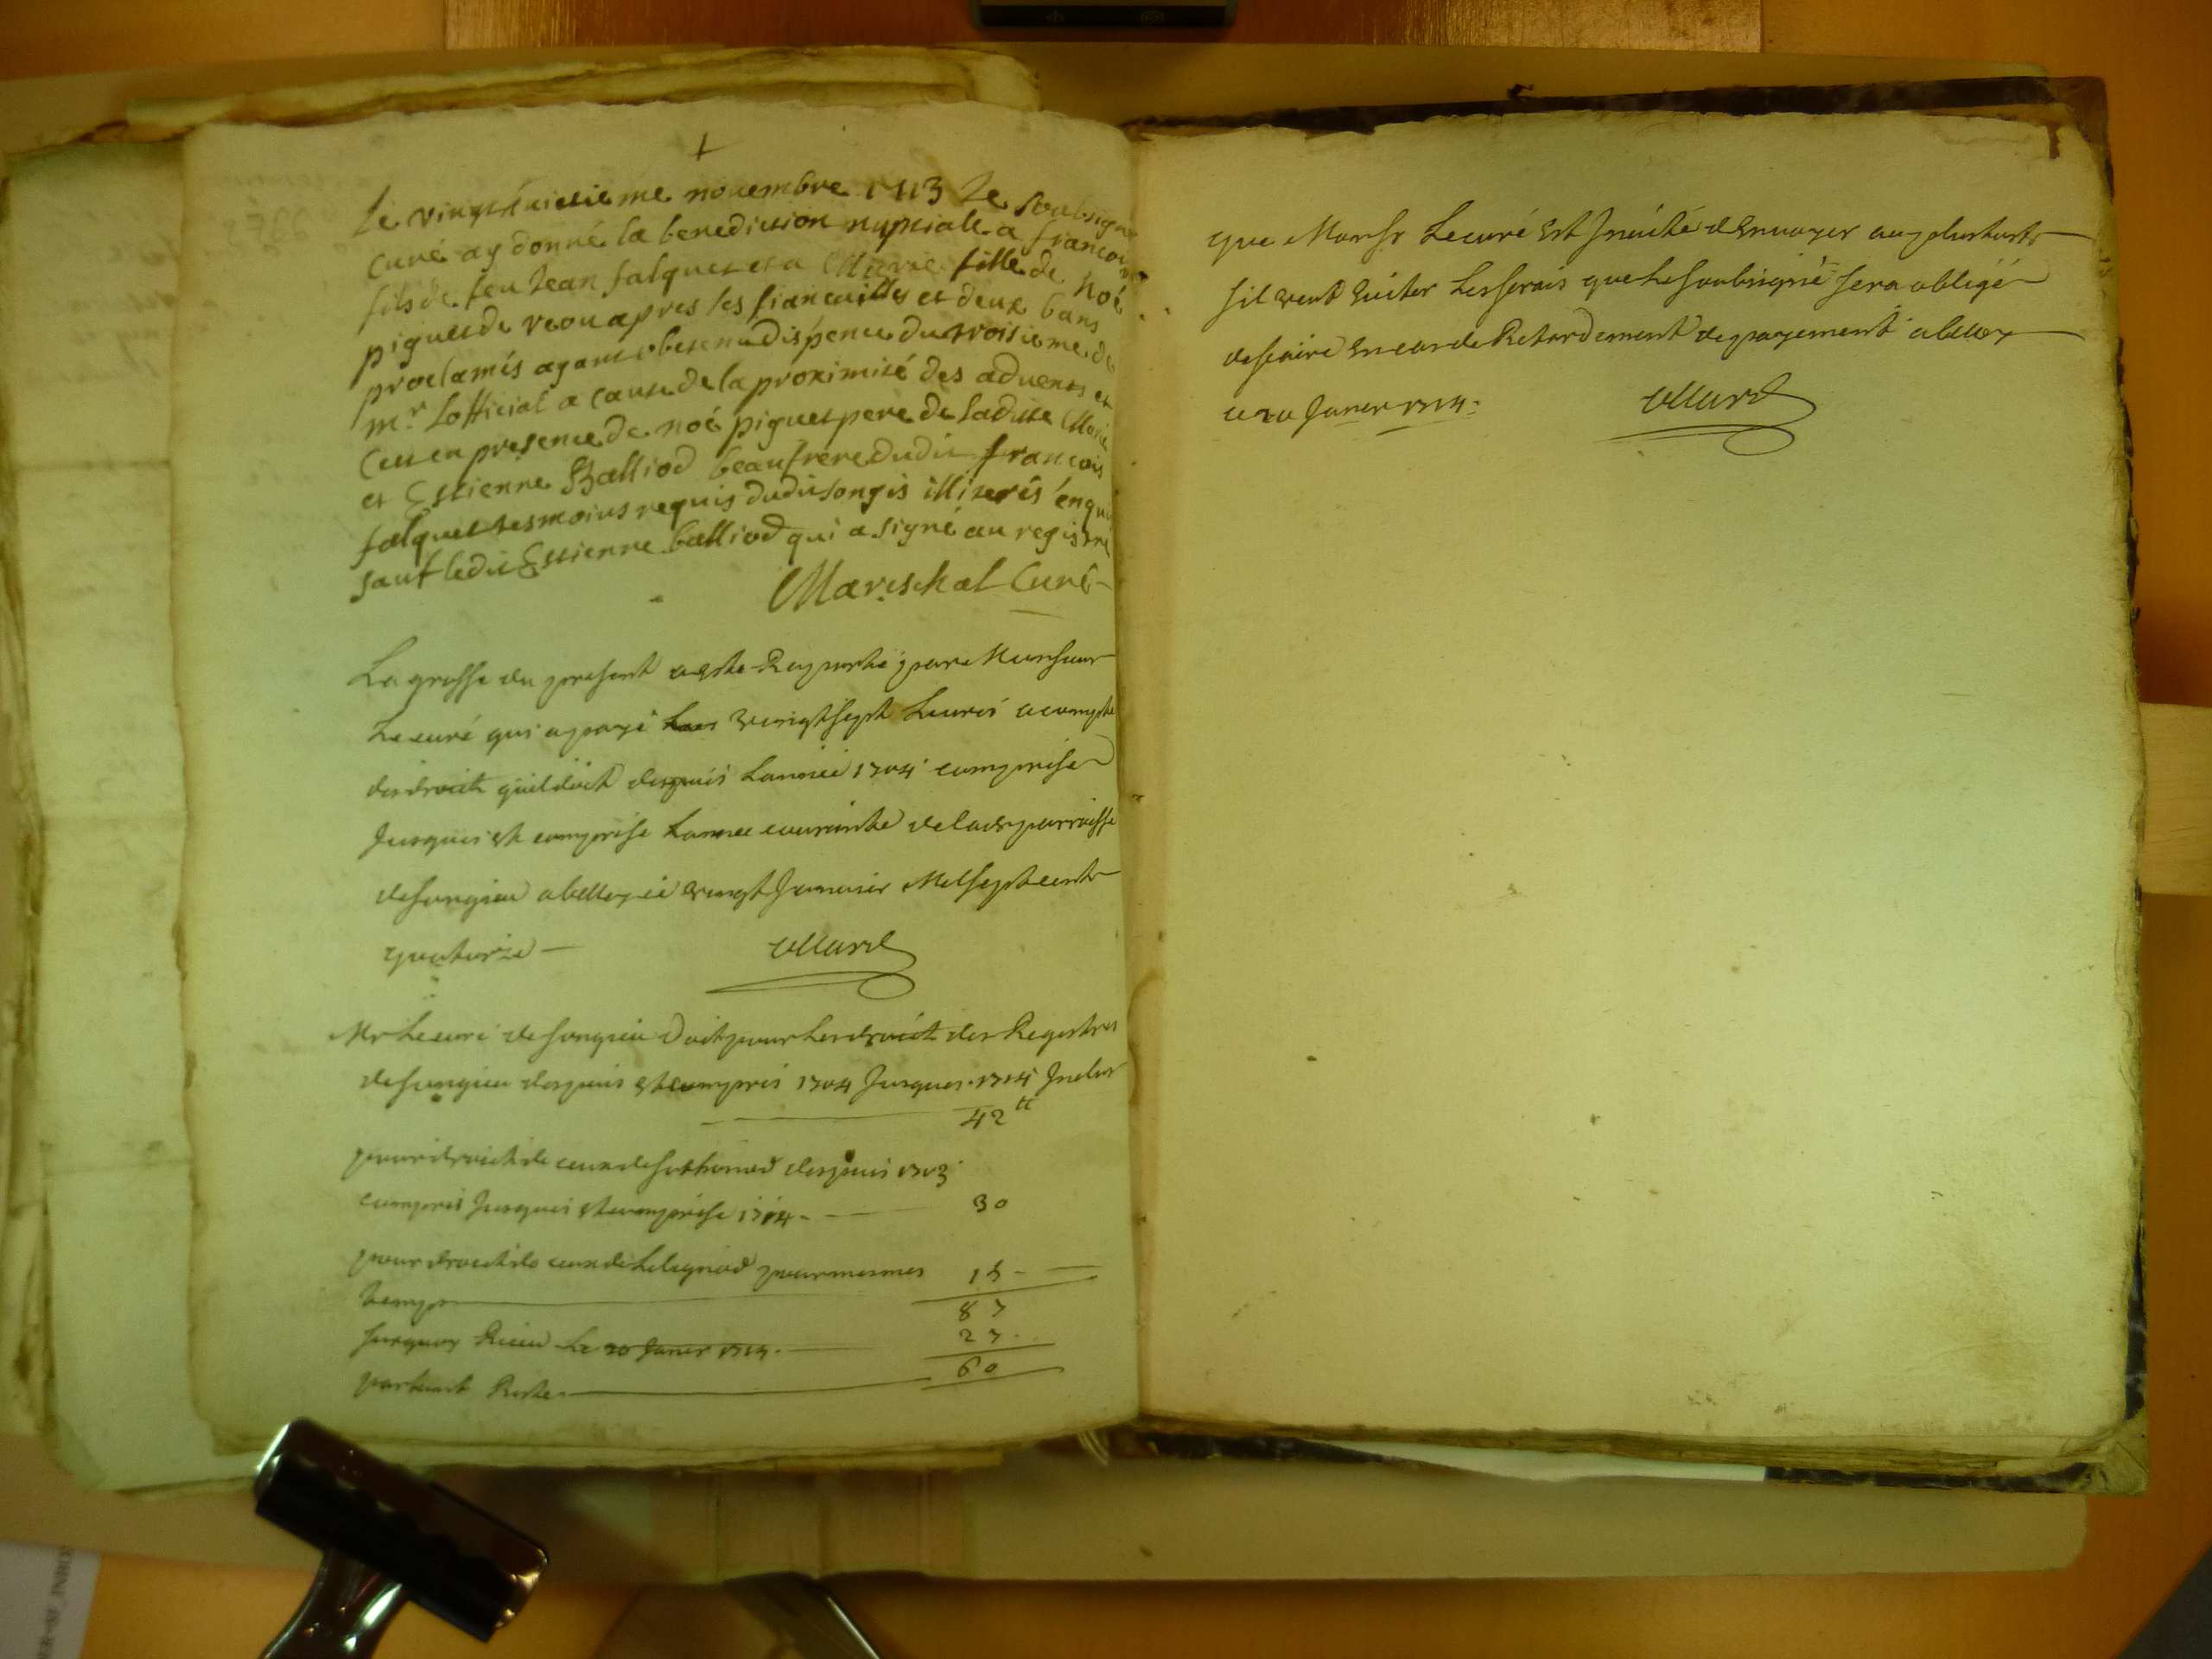 Le vingthuictieme novembre 1713 Je soubsigné
curé ay donné la benediction nuptialle a françois
fils de feu Jean falquet et a Marie fille de Noé
piguet de veou apres les fiancailles et deux bans
proclamés ayant obtenu dispence du troisieme de
mr. Lofficial a cause de la proximité des advents et
ce en presence de noé piguet pere de ladite Marie
et Estienne Balliod beaufrere dudit francois
falquet tesmoins requis dudit songis illiterés enquis
sauf ledit Estienne balliod qui a signé au registre
Mareschal Curé
La grosse du present a esté Raporté par Monsieur
Le curé qui a payé vingt sept Livres a compte
des droits quil doit despuis Lannée 1704 comprise
Jusques et comprise Lannée courante de lad parroisse
de songieu a belley ce vingt Janvier Mil sept cents
quatorze
Mr Le curé de songieu Doit pour Les droict des Registres
de songieu despuis et compris 1704 Jusques 1714 Inclus
42 tt
pour droict de ceux de sothonod despuis 1703
compris Jusques et comprise 1714 - 30
pour droict de ceux de Lilignod pour mesmes 15 -
temps
87
surquoy Receu Le 20 Janer 1714 . 27 .
partant Reste 60
que Monsr Le curé est Invité denvoyer au plustost
sil veut Eviter Les frais que Le soubsigné sera obligé
de faire en cas de Retardement de payement a belley
ce 20 Janer 1714 .